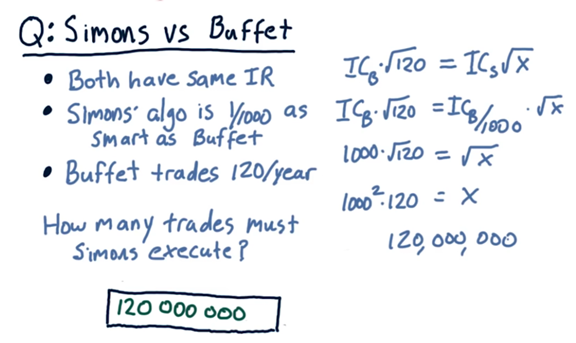 Q: Simons vs Buffet
• Both have same IR
• Simons' algo is 1/1000 as
smart as Buffet
• Buffet trades 120/year
How many trades must
Simons execute?
120 000 000
IC_B·√120 = IC_S√X
IC_B·√120 = IC_B/1000·√X
1000·√120 = √X
1000²·120 = X
120,000,000